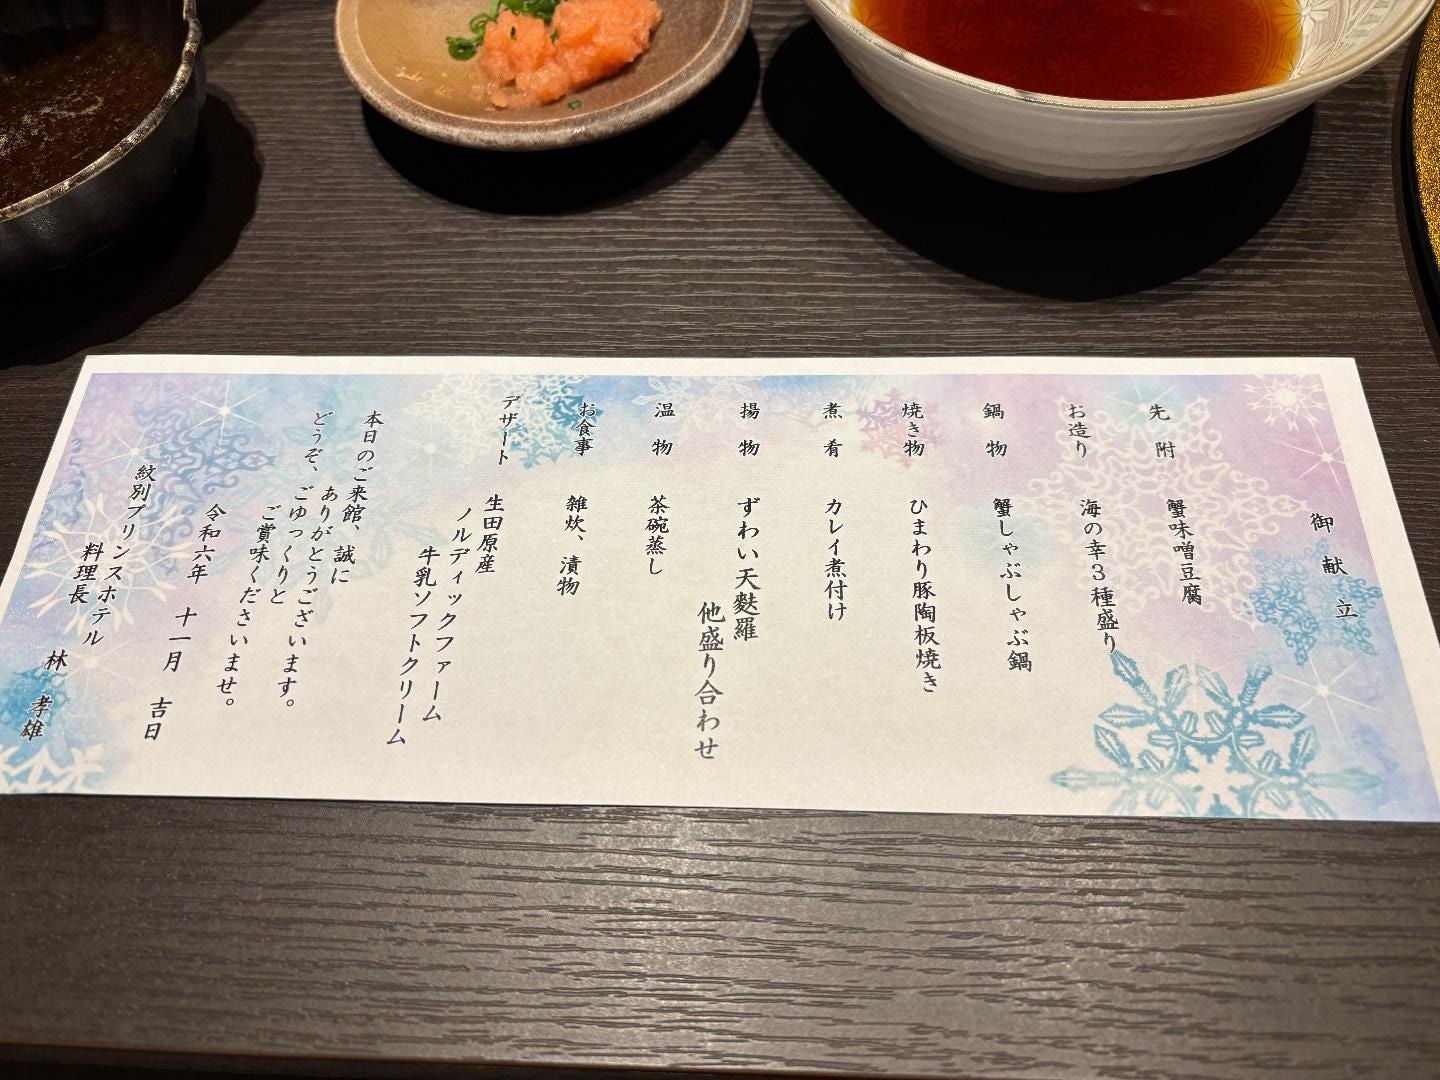 御献立
先附
蟹味噌豆腐
お造り
海の幸3種盛り
鍋物
蟹しゃぶしゃぶ鍋
焼き物
ひまわり豚陶板焼き
煮肴
カレイ煮付け
揚物
ずわい天麩羅
他盛り合わせ
温物
茶碗蒸し
お食事
雑炊、漬物
デザート
生田原産
ノルディックファーム
牛乳ソフトクリーム
本日のご来館、誠に
ありがとうございます。
どうぞ、ごゆっくりと
ご賞味くださいませ。
令和六年 十一月 吉日
紋別プリンスホテル
料理長 林 孝雄